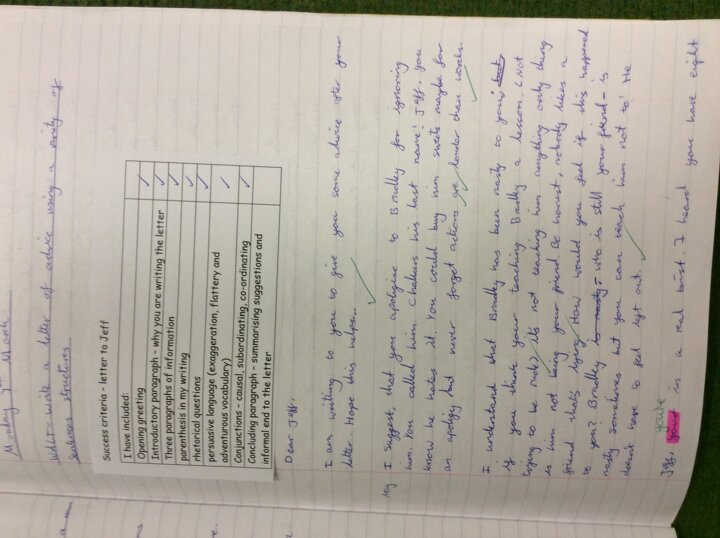 Monday 7th March
WALT: Write a letter of advice using a variety of
sentence structures
Success criteria – letter to Jeff
I have included:
Opening greeting
Introductory paragraph – why you are writing the letter
Three paragraphs of information
parenthesis in my writing
rhetorical questions
persuasive language (exaggeration, flattery and
adventurous vocabulary)
Conjunctions – causal, subordinating, co-ordinating
Concluding paragraph – summarising suggestions and
informal end to the letter
Dear Jeff,
I am writing to you to give you some advice after your
letter. Hope this helps...
I suggest, that you apologise to Bradley for ignoring
him. You called him Chalkers his last name! Jeff, you
know he hates it. You could buy him sweets maybe for
an apoligy but never forget actions are louder than words.
I understand that Bradley has been nasty to you
if you think your teaching Bradley a lesson. (Not
trying to be rude) its not teaching him anything only thing
is him not being your friend. Be honest, nobody likes a
friend thats lying. How would you feel if this happened
to you? Bradley - who is still your friend - is
nasty sometimes but you can teach him not to! He
doesnt have to feel left out.
you're
Jeff, your in a real twist. I heard you have eight